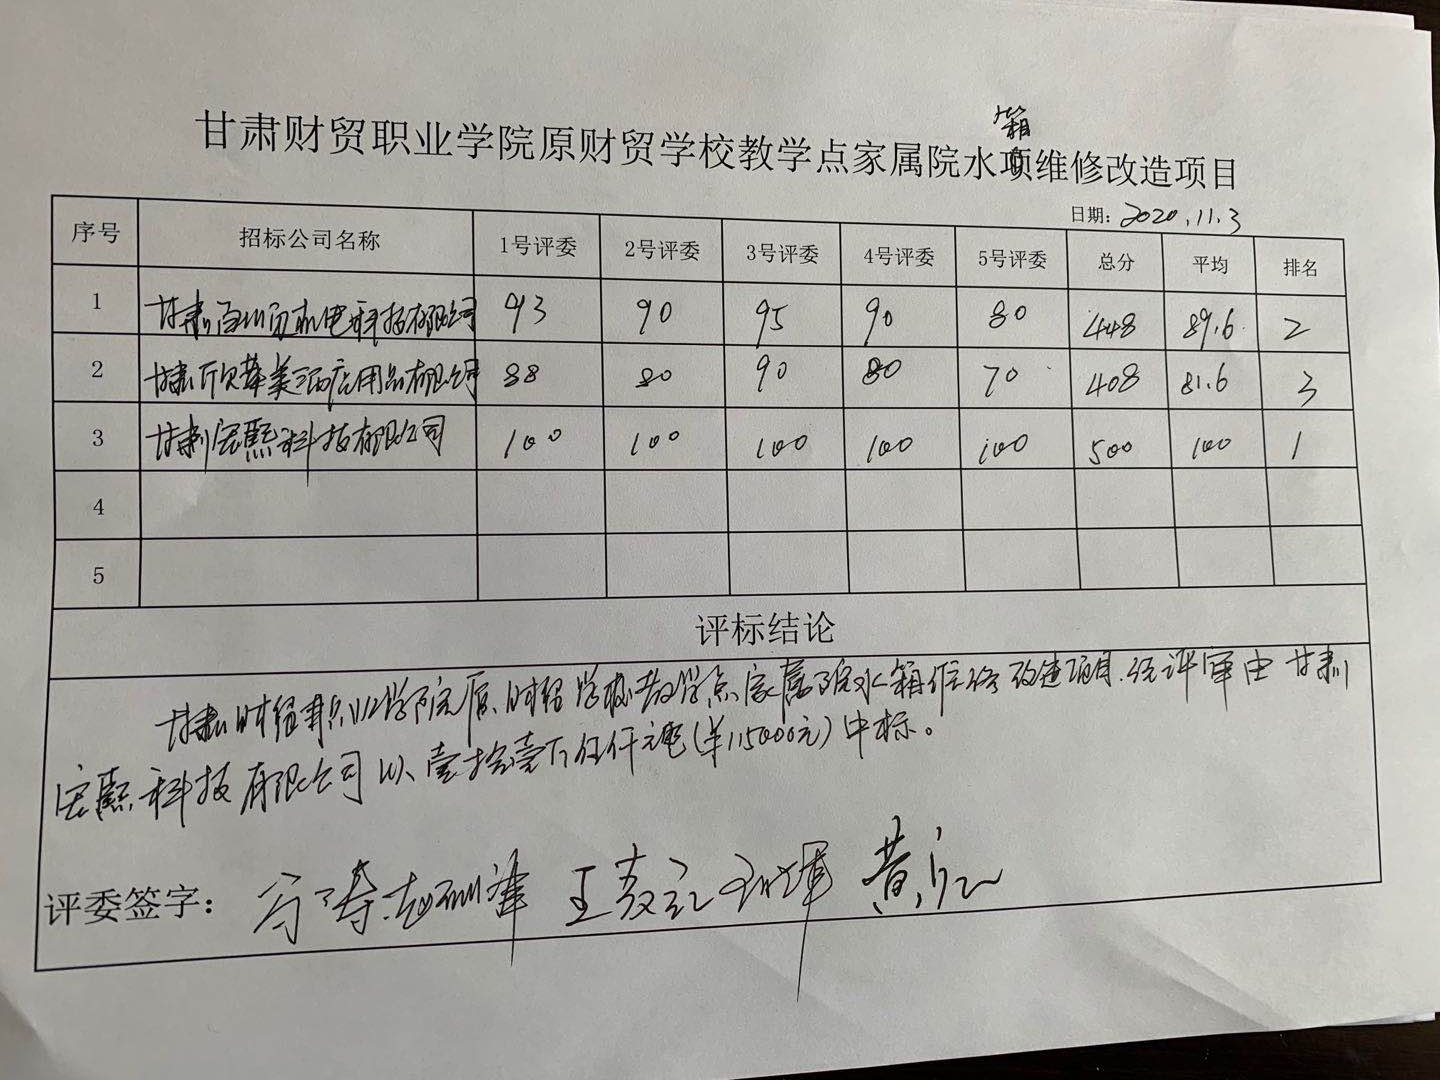 甘肃财贸职业学院原财贸学校教学点家属院水箱维修改造项目
日期：2020.11.3
序号 招标公司名称 1号评委 2号评委 3号评委 4号评委 5号评委 总分 平均 排名
1 甘肃百川贸机电科技有限公司 93 90 95 90 80 448 89.6 2
2 甘肃欣华美酒店用品有限公司 88 80 90 80 70 408 81.6 3
3 甘肃宏熙科技有限公司 100 100 100 100 100 500 100 1
4
5
评标结论
甘肃财贸职业学院原财贸学校教学点家属院水箱维修改造项目.经评审由甘肃
宏熙科技有限公司以壹拾壹万伍仟元(¥115000元)中标。
评委签字：